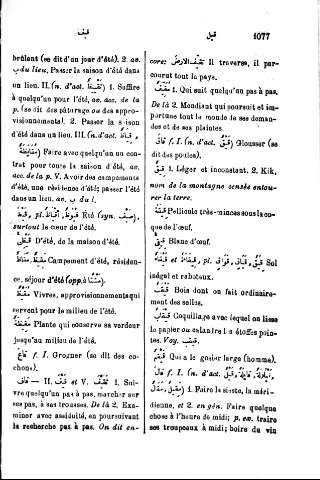 قيف
قيل
1077
brûlant (se dit d'un jour d'été). 2. ac.
du lieu, Passer la saison d'été dans
un lieu. II. (n. d'act. تَقْيِيظ) 1. Suffire
à quelqu'un pour l'été, ac. acc. de la
p. (se dit des pâturages ou des appro-
visionnements). 2. Passer la saison
d'été dans un lieu. III. (n. d'act.
Faire avec quelqu'un un con-
trat pour toute la saison d'été, ac.
acc. de la p. V. Avoir des campements
d'été, une résidence d'été; passer l'été
dans un lieu, ac. du l.
قَيْظ, pl. أَقْيَاظ, قُيُوظ Été (syn. صيف),
surtout le cœur de l'été.
قَيْظِيّ D'été, de la saison d'été.
Campement d'été, résiden-
ce, séjour d'été (opp. à
Vivres, approvisionnements qui
servent pour le milieu de l'été.
Plante qui conserve sa verdeur
jusqu'au milieu de l'été.
قاع f. I. Grogner (se dit des co-
chons).
قاف — II. قيّف et V. تقيّف 1. Sui-
vre quelqu'un pas à pas, marcher sur
ses pas, à ses trousses. De là 2. Exa-
miner avec assiduité, en poursuivant
la recherche pas à pas. On dit en-
core: Il traverse, il par-
court tout le pays.
1. Qui suit quelqu'un pas à pas.
De là 2. Mendiant qui poursuit et im-
portune tout le monde de ses deman-
des et de ses plaintes.
قاق f. I. (n. d'act. قَيْق) Glousser (se
dit des poules).
قيق 1. Léger et inconstant. 2. Kik,
nom de la montagne sensée entou-
rer la terre.
Pellicule très-mince sous la co-
que de l'œuf.
Blanc d'œuf.
et pl. Sol
inégal et raboteux.
قيقب Bois dont on fait ordinaire-
ment des selles.
Coquillage avec lequel on lisse
le papier ou calandre la étoffes poin-
tes. Voy.
Qui a le gosier large (homme).
قال f. I. (n. d'act.
1. Faire la sieste, la méri-
dienne, et 2. en gén. Faire quelque
chose à l'heure de midi; p. ex. traire
ses troupeaux à midi; boire du vin